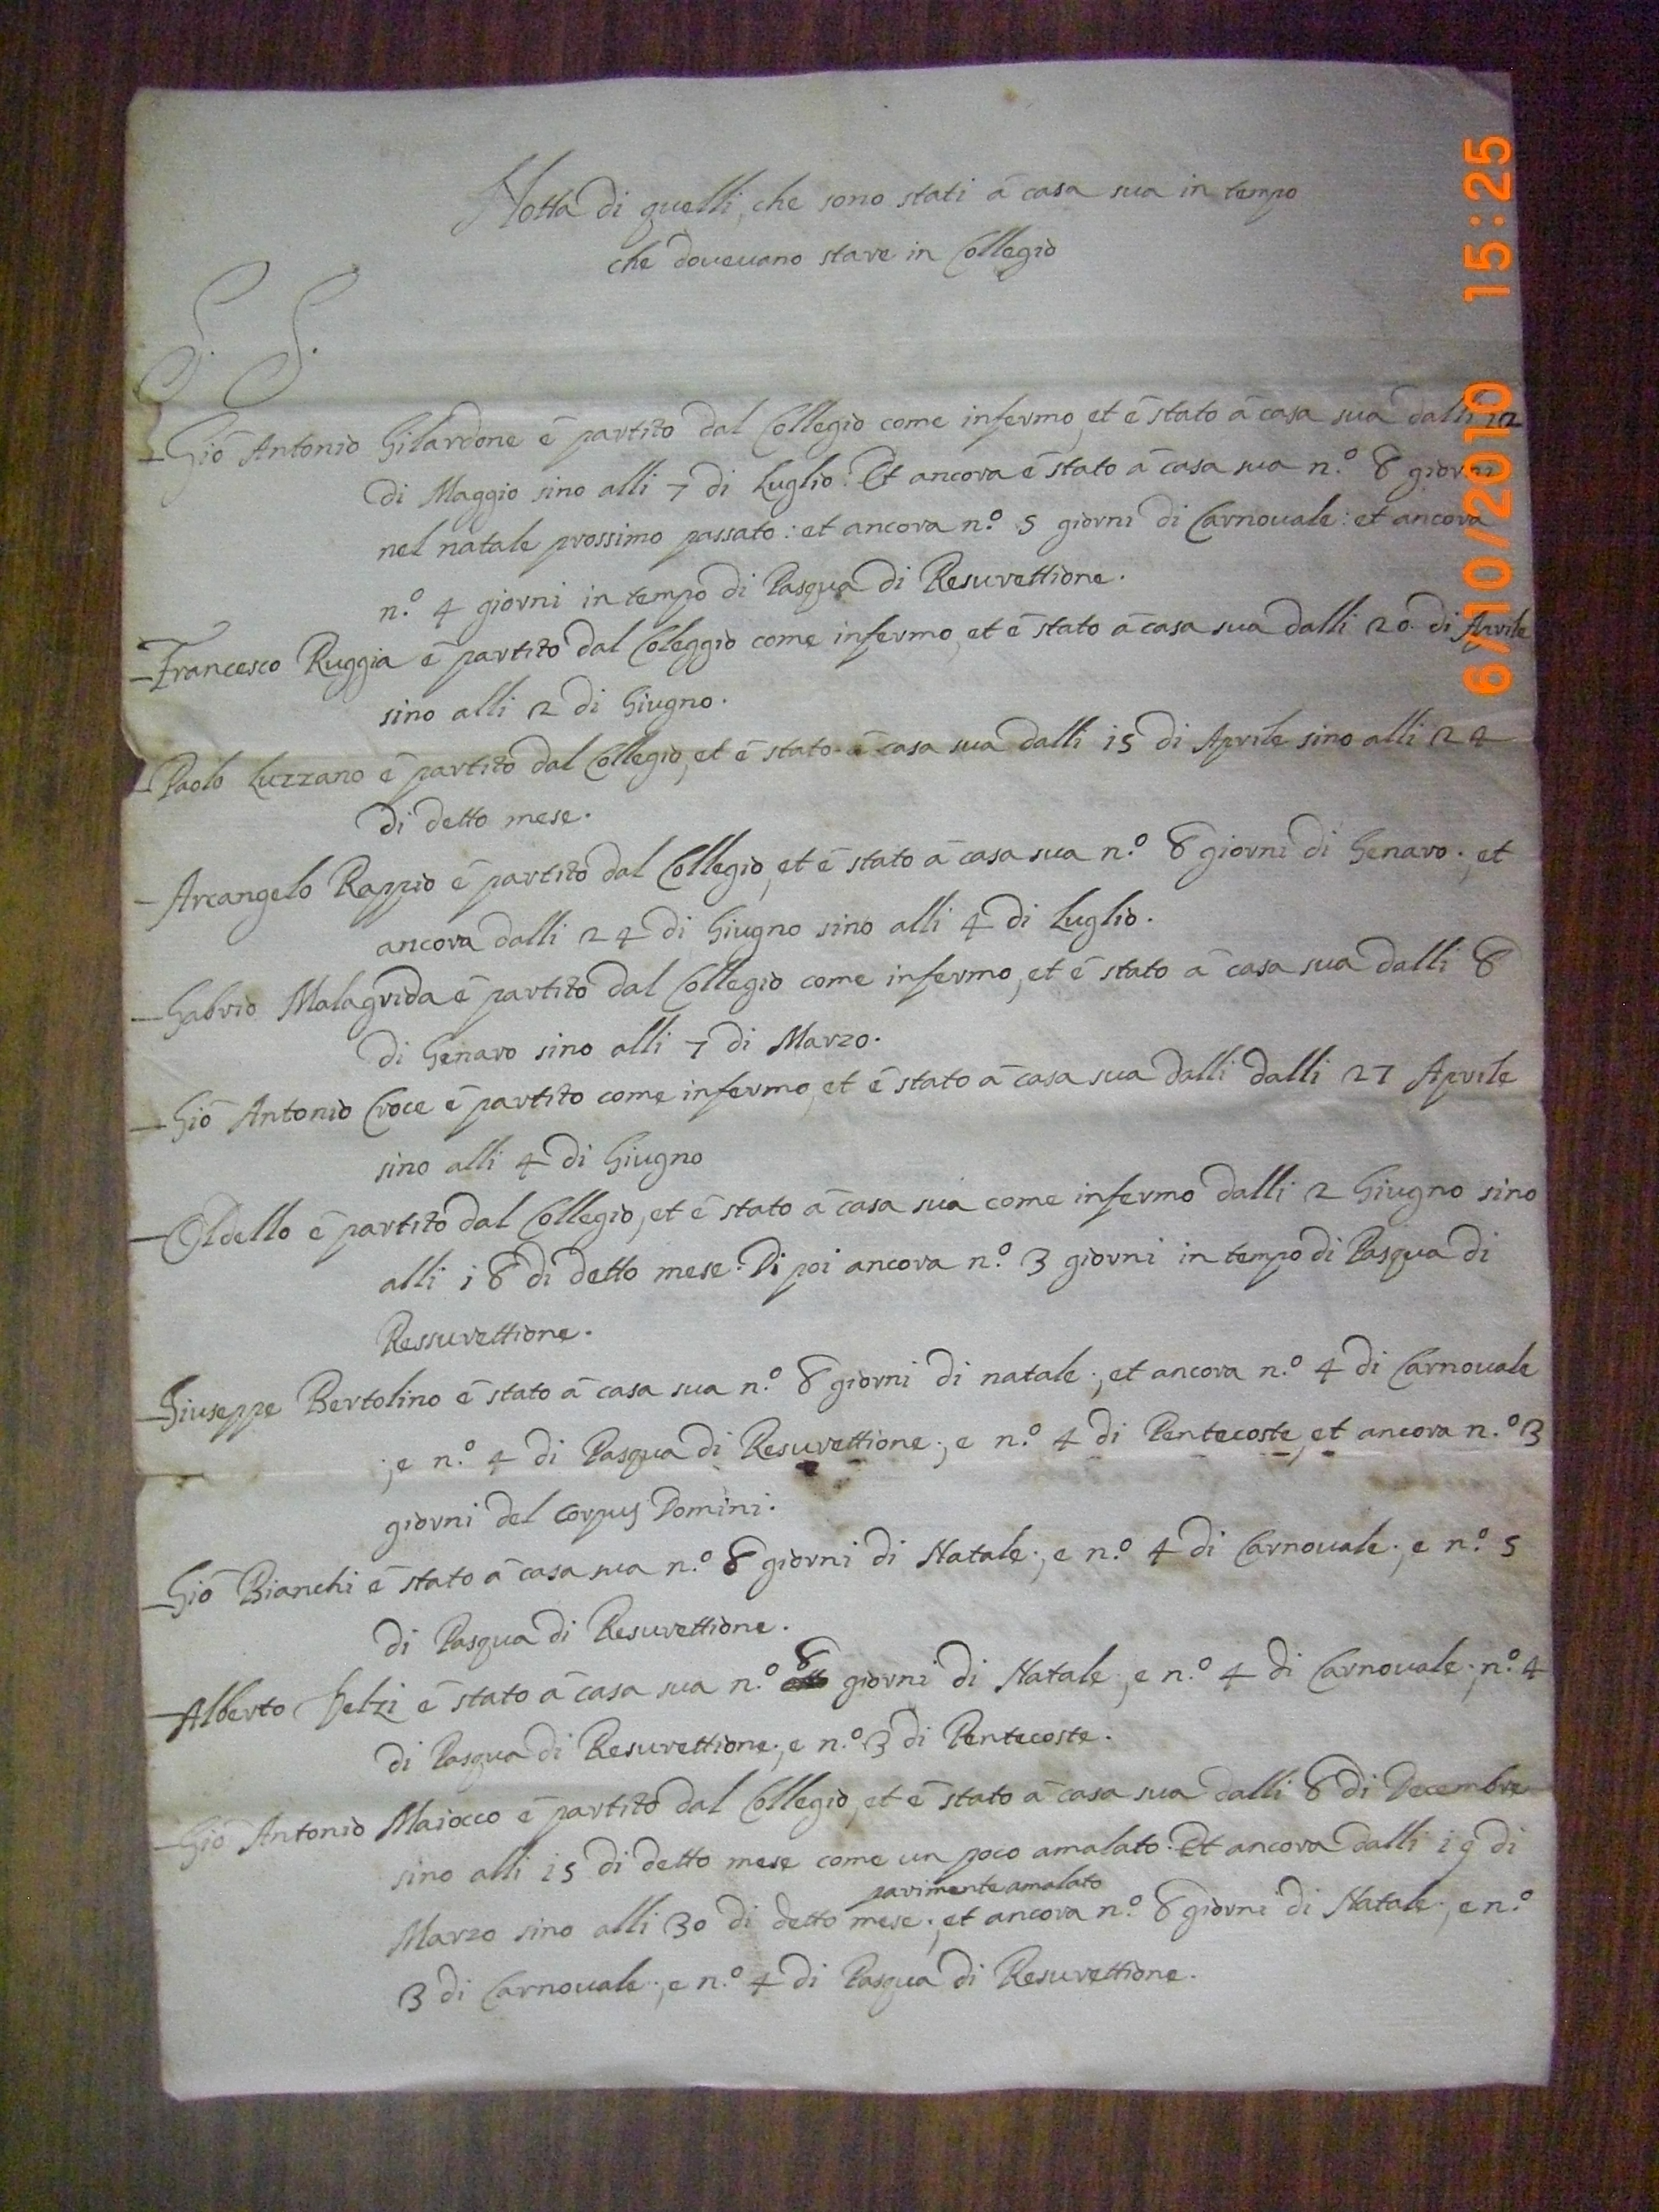 Notta di quelli, che sono stati à casa sua in tempo
che doueuano stare in Collegio
S. S.
Giò Antonio Gilardone è partito dal Collegio come infermo, et è stato à casa sua dalli 12
di Maggio sino alli 7 di Luglio. Et ancora è stato à casa sua n.º 8 giorni
nel natale prossimo passato: et ancora n.º 5 giorni di Carnouale: et ancora
n.º 4 giorni in tempo di Pasqua di Resurettione.
Francesco Ruggia è partito dal Coleggio come infermo, et è stato à casa sua dalli 20 di Aprile
sino alli 2 di Giugno.
Paolo Luzzano è partito dal Collegio, et è stato à casa sua dalli 15 di Aprile sino alli 24
di detto mese.
Arcangelo Rappio è partito dal Collegio, et è stato à casa sua n.º 8 giorni di Genaro; et
ancora dalli 24 di Giugno sino alli 4 di Luglio.
Gabrio Malagrida è partito dal Collegio come infermo, et è stato à casa sua dalli 8
di Genaro sino alli 7 di Marzo.
Giò Antonio Croce è partito come infermo, et è stato à casa sua dalli dalli 27 Aprile
sino alli 4 di Giugno
Oldello è partito dal Collegio, et è stato à casa sua come infermo dalli 2 Giugno sino
alli 18 di detto mese. Di poi ancora n.º 3 giorni in tempo di Pasqua di
Ressurettione.
Giuseppe Bertolino è stato à casa sua n.º 8 giorni di natale; et ancora n.º 4 di Carnouale
; e n.º 4 di Pasqua di Resurettione; e n.º 4 di Pentecoste, et ancora n.º 3
giorni del Corpus Domini.
Giò Bianchi è stato à casa sua n.º 8 giorni di Natale; e n.º 4 di Carnouale; e n.º 5
di Pasqua di Resurettione.
Alberto Felzi è stato à casa sua n.º 8 giorni di Natale; e n.º 4 di Carnouale; n.º 4
di Pasqua di Resurettione; e n.º 3 di Pentecoste.
Giò Antonio Maiocco è partito dal Collegio, et è stato à casa sua dalli 8 di Decembre
sino alli 15 di detto mese come un poco amalato. Et ancora dalli 19 di
parimente amalato
Marzo sino alli 30 di detto mese; et ancora n.º 8 giorni di Natale; e n.º
3 di Carnouale; e n.º 4 di Pasqua di Resurettione.
6/10/2010 15:25